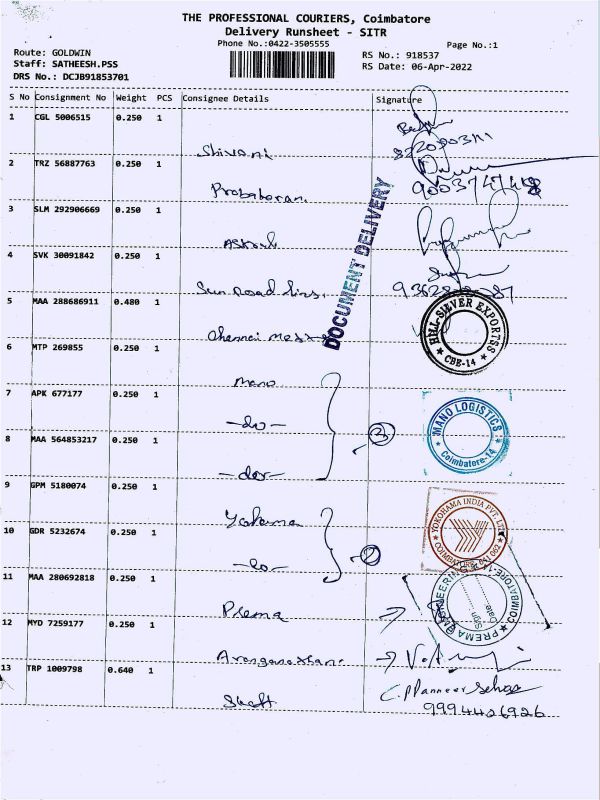 THE PROFESSIONAL COURIERS, Coimbatore
Delivery Runsheet - SITR
Phone No.:0422-3505555
Page No.:1
Route: GOLDWIN
Staff: SATHEESH.PSS
DRS No.: DCJB91853701
RS No.: 918537
RS Date: 06-Apr-2022
S No Consignment No Weight PCS Consignee Details Signature
1 CGL 5006515 0.250 1
Shivani
2 TRZ 56887763 0.250 1
Prabakaran
3 SLM 292906669 0.250 1
4 SVK 30091842 0.250 1
Sun Road lins.
5 MAA 288686911 0.480 1
Chennai
6 MTP 269855 0.250 1
Mano
7 APK 677177 0.250 1
-do-
8 MAA 564853217 0.250 1
3
9 GPM 5180074 0.250 1
10 GDR 5232674 0.250 1
-do-
11 MAA 280692818 0.250 1
Prema
12 MYD 7259177 0.250 1
13 TRP 1009798 0.640 1
9994426926
DOCUMENT DELIVERY
HILL-SILVER EXPORTSS
CBE-14
MANO LOGISTICS
Coimbatore-14
YOKOHAMA INDIA PVT. LTD.
PREMA
COIMBATORE-14
Date
Sign